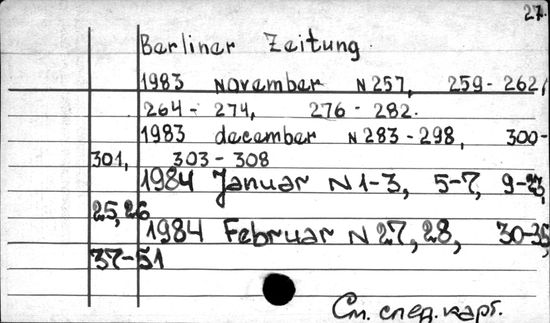 27.
Berliner Zeitung.
1983 november N 257, 259-262,
264-274, 276-282.
1983 december N 283-298, 300-
301, 303-308
1984 Januar N 1-3, 5-7, 9-23,
25, 26
1984 Februar N 27, 28, 30-35,
37-51
См. след. карт.